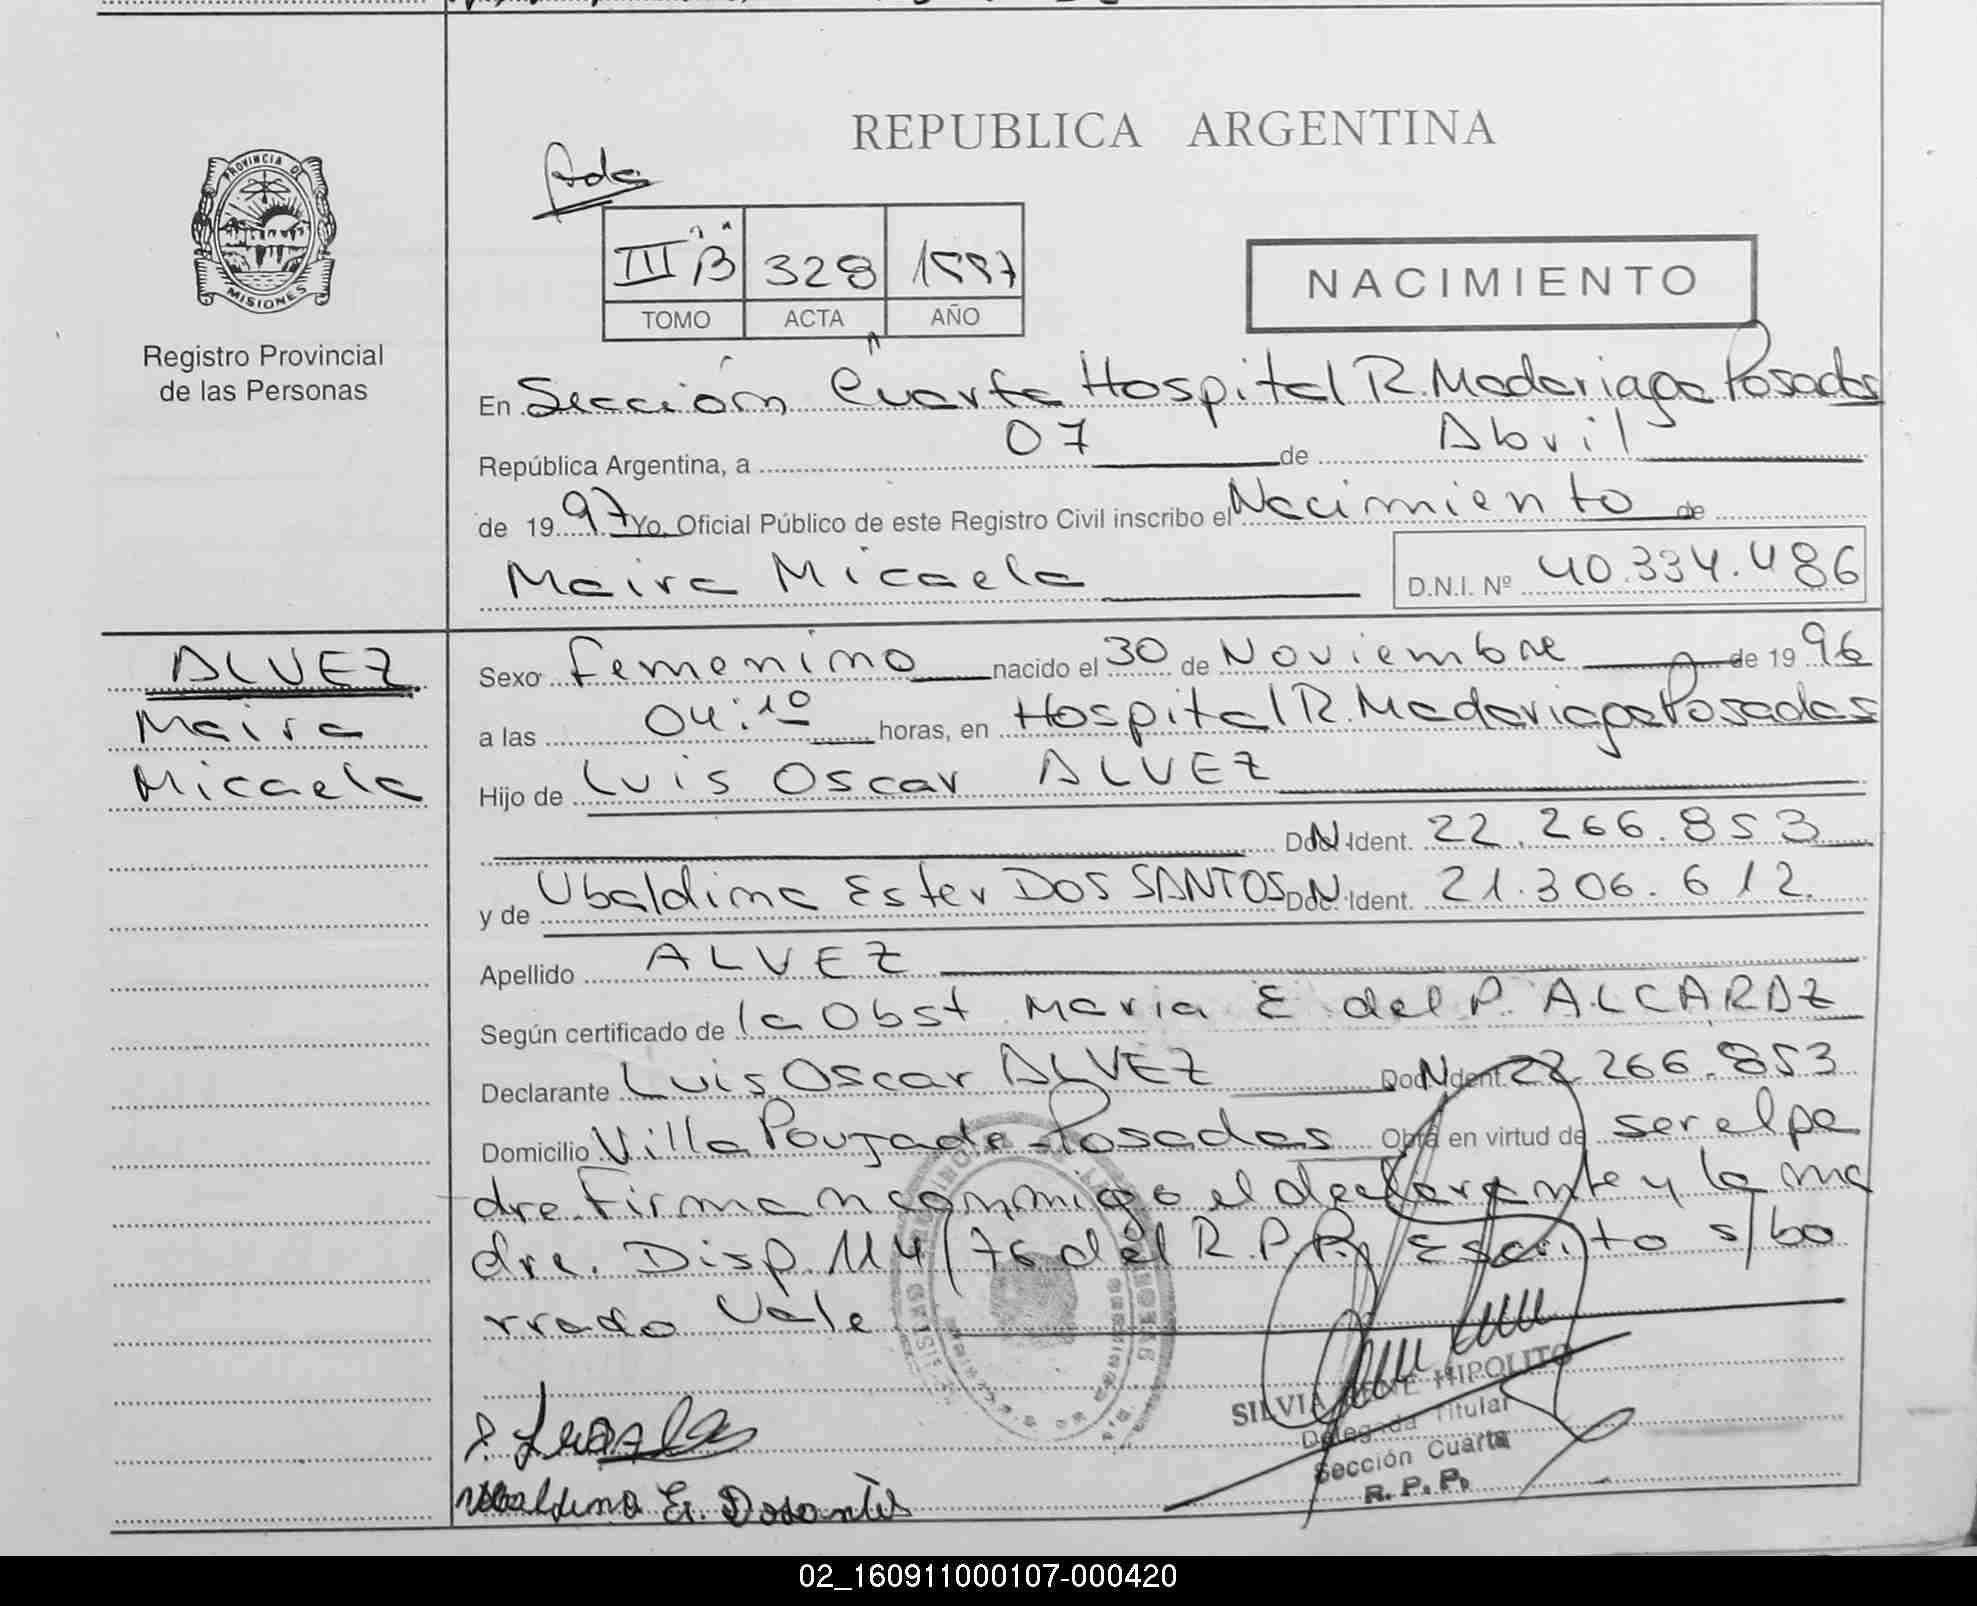 REPUBLICA ARGENTINA
PROVINCIA DE
MISIONES
Registro Provincial
de las Personas
III "B" 328 1997
TOMO ACTA AÑO
NACIMIENTO
En Sección Cuarta Hospital R. Madariaga Posadas
República Argentina, a 07 de Abril
de 1997 Yo, Oficial Público de este Registro Civil inscribo el Nacimiento de
Maira Micaela D.N.I. Nº 40.334.486
ALVEZ
Maira
Micaela
Sexo femenino nacido el 30 de Noviembre de 1996
a las 04:10 horas, en Hospital R. Madariaga Posadas
Hijo de Luis Oscar ALVEZ
Doc. N. Ident. 22.266.853
y de Ubaldina Ester DOS SANTOS Doc. N. Ident. 21.306.612.
Apellido ALVEZ
Según certificado de la Obst. Maria E. del P. ALCARAZ
Declarante Luis Oscar ALVEZ Doc. N. Ident. 22.266.853
Domicilio Villa Poujade-Posadas Obra en virtud de ser el pa
dre. Firman conmigo el declarante y la ma
dre. Disp. 114/76 del R.P.P. Escrito s/bo
rrado Vale
SILVIA IRENE HIPOLITO
Delegada Titular
Sección Cuarta
R. P. P.
Ubaldina E. Dosantos
02_160911000107-000420